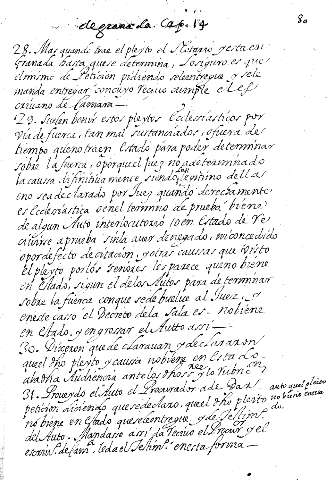 de granada. Cap. 14
80
28. Mas quando trae el pleyto el Notario y esta en
Granada hasta que se determina, lo siguro es que
el mismo de Peticion pidiendo se le entregue y se le
manda entregar con cuyo recivo cumple el Es
crivano de Camara —
29. Suelen benir estos pleytos Ecclesiasticos por
via de fuerca, tan mal sustanciados, o fuera de
tiempo que no traen Estado para poder determinar
sobre la fuerca, o porque el Juez no a determinado
la causa difinitivamente siendo en termino della
o no sea declarado por Juez quando derechamente
es Ecclesiastica o en el termino de prueba biene
de algun Auto interlocutorio o en Estado de re
civirse a prueba sin la aver denegado, ni concedido
o por defecto de citacion, y otras caussas que visto
el pleyto por los señores les parece que no biene
en Estado, siguen el de los Autos para determinar
sobre la fuerca con que se buelve al Juez, y
en este caso el Decreto de la Sala es no biene
en estado, y en grosar el Autto assi —
30. Dixeron que declaravan y declararon
que el dho pleyto y caussa no biene en Estado
a la dha Audiencia ante los dhos y lo rubric
31. Proveydo el Auto el Procurador a de Dar
peticion diciendo que se declaro, que el dho pleyto
no biene en Estado que se le entregue y de testim
del Auto. Mandase assi da recivo el Procur y el
escriv. de Cam. le da el testim. en esta forma —
auto que el pleito
no biene en esta
do.